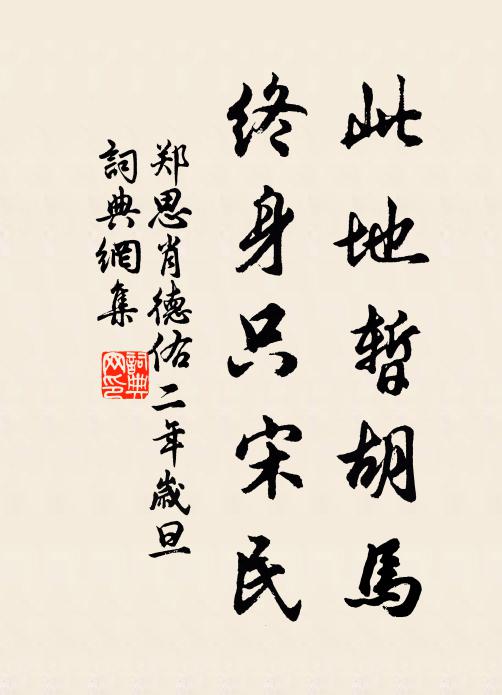 此地暫胡馬
終身只宋民
郑思肖德佑二年歲旦
詞典網集
詞典網印